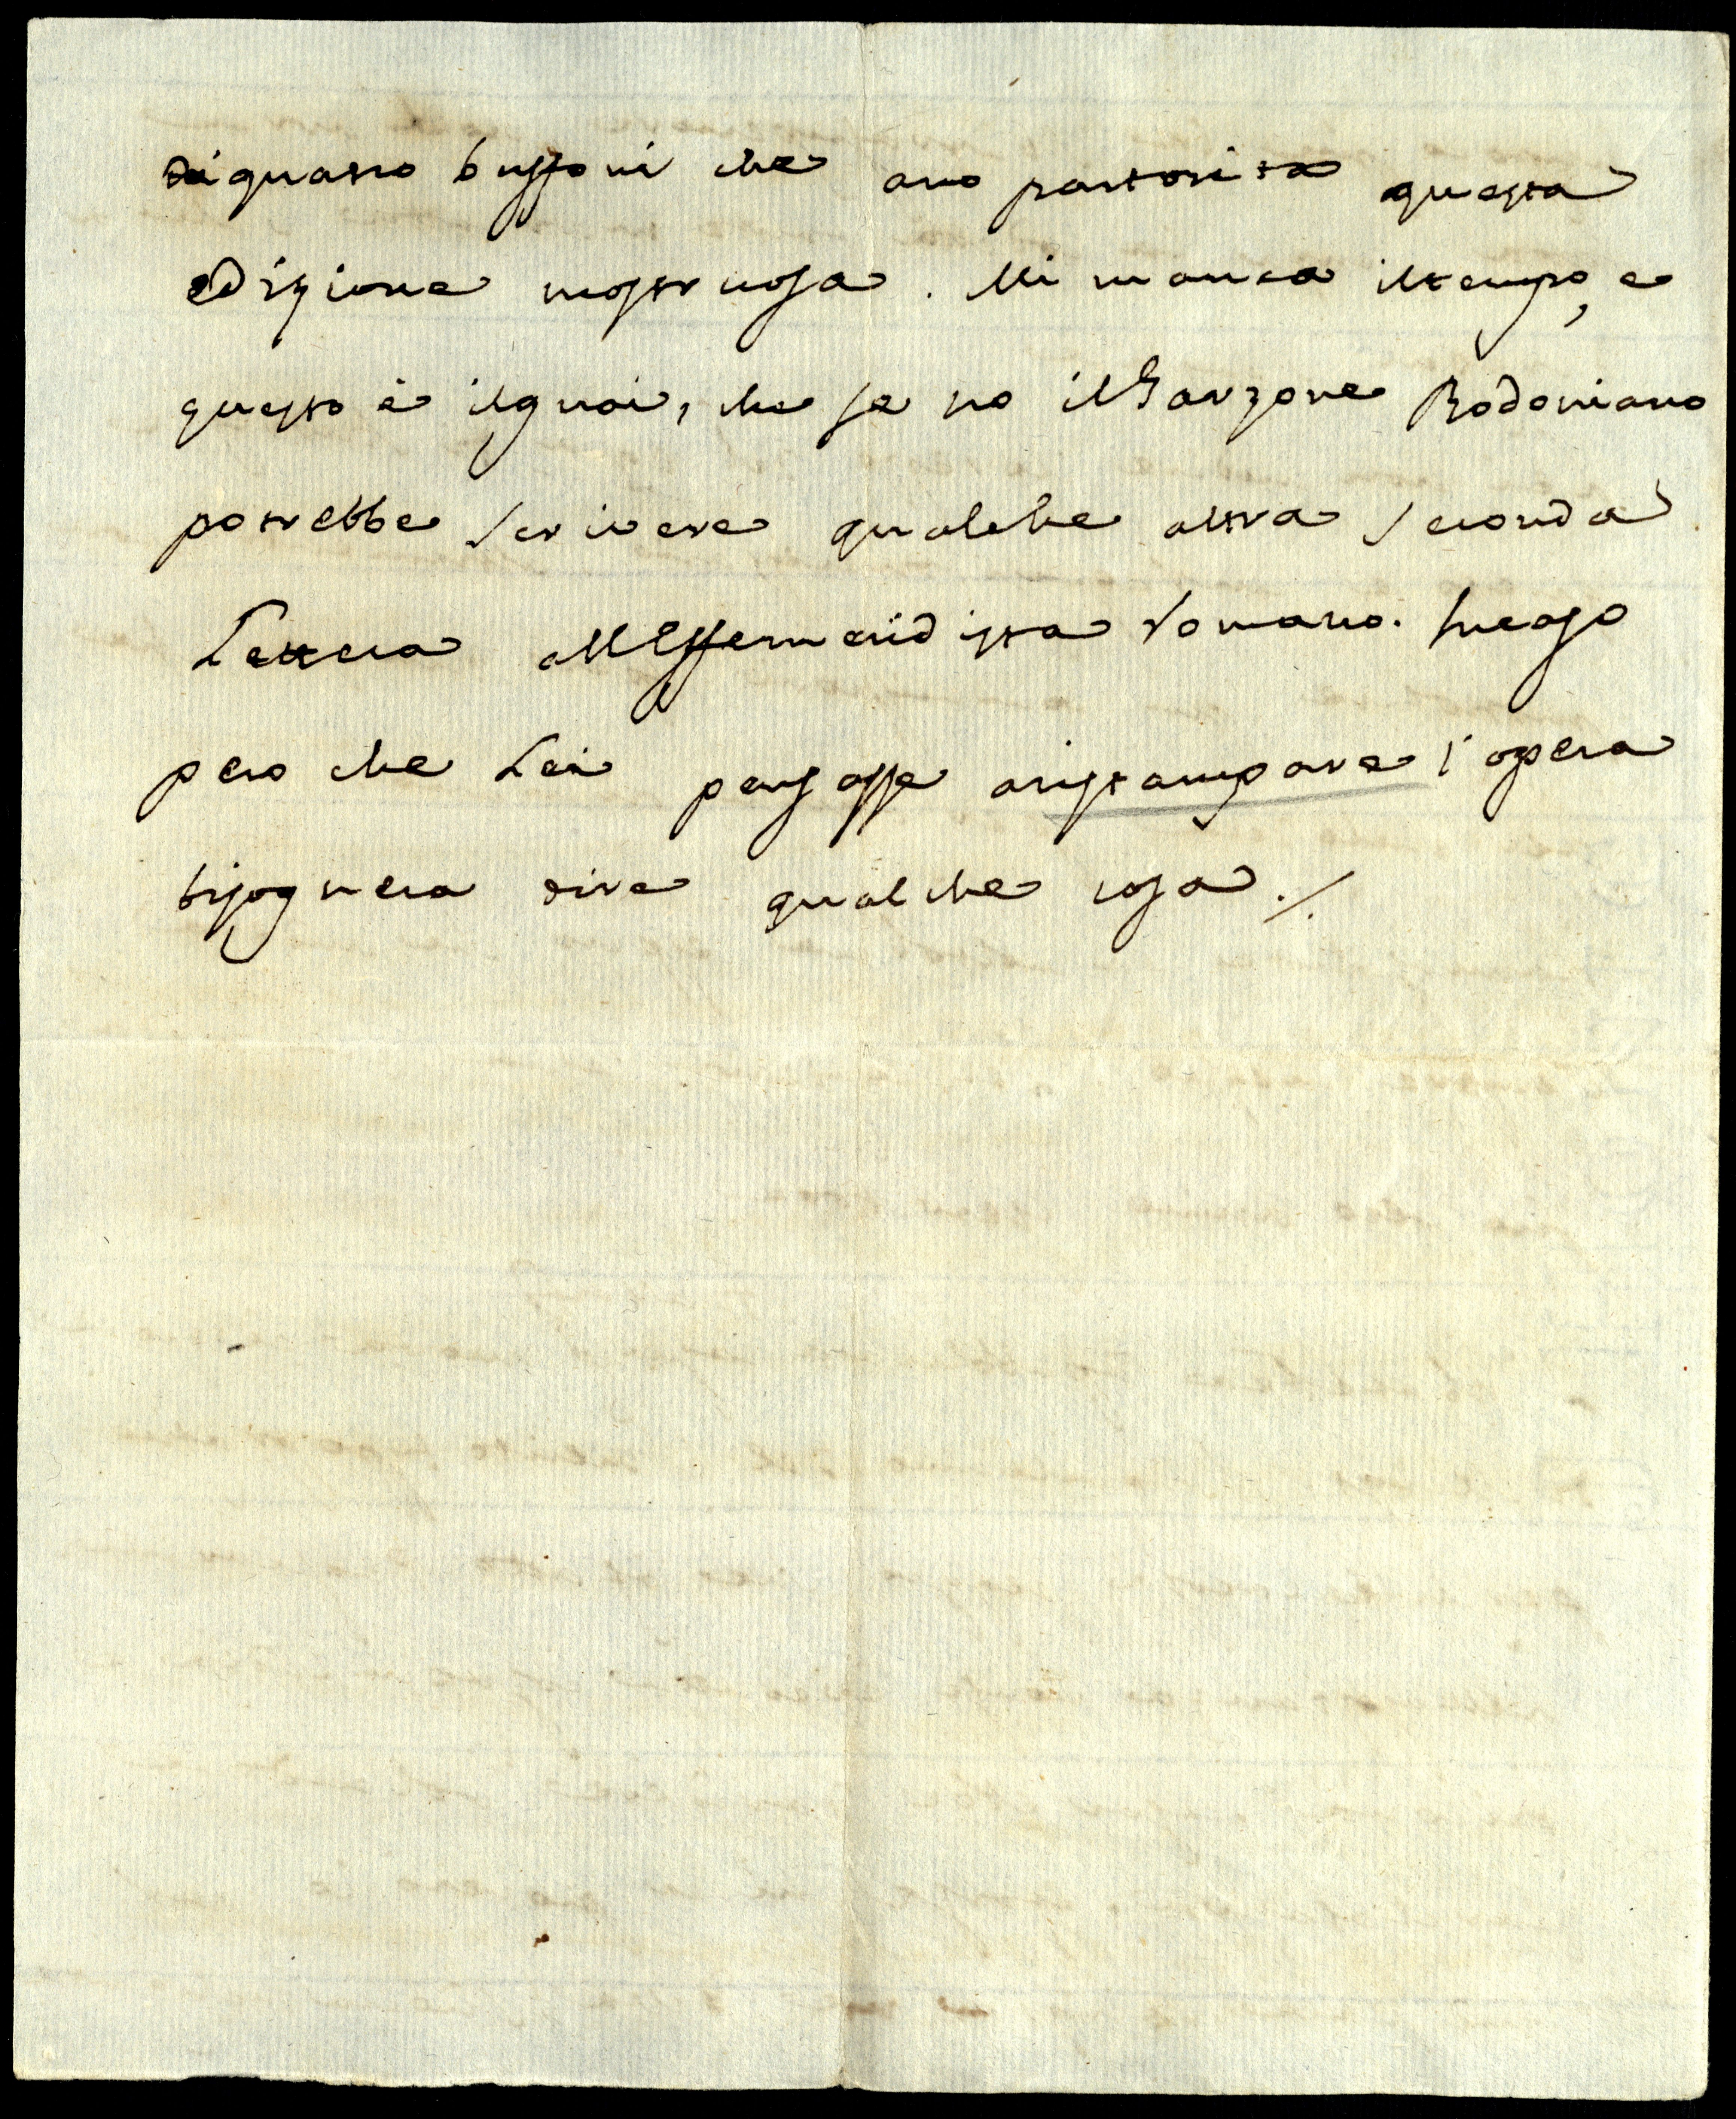 di quatro buffoni che ano partorita questa
edizione mostruosa. Mi manca il tempo, e
questo è il guai, che se no il Garzone Bodoniano
potrebbe scrivere qualche altra seconda
Lettera all'Effemeridista Romano.
pero che Lei pensasse aristampare l'opera
bisognera dire qualche cosa./.